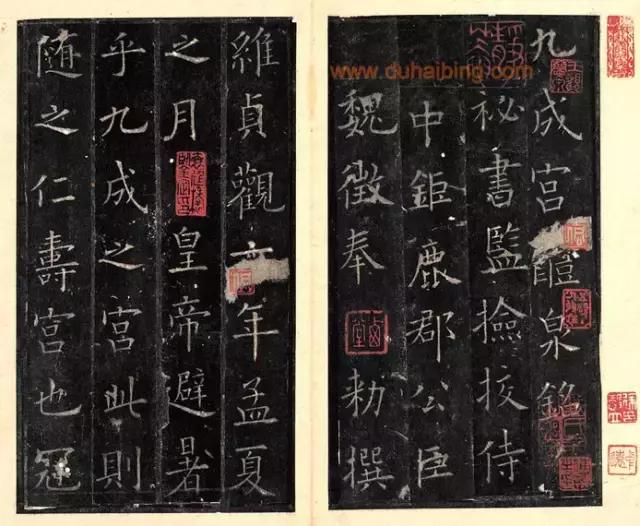 九成宫醴泉銘
秘書監撿挍侍
中鉅鹿郡公臣
魏徵奉 勑撰
維貞觀六年孟夏
之月 皇帝避暑
乎九成之宫此則
随之仁壽宫也冠
www.duhaibing.com